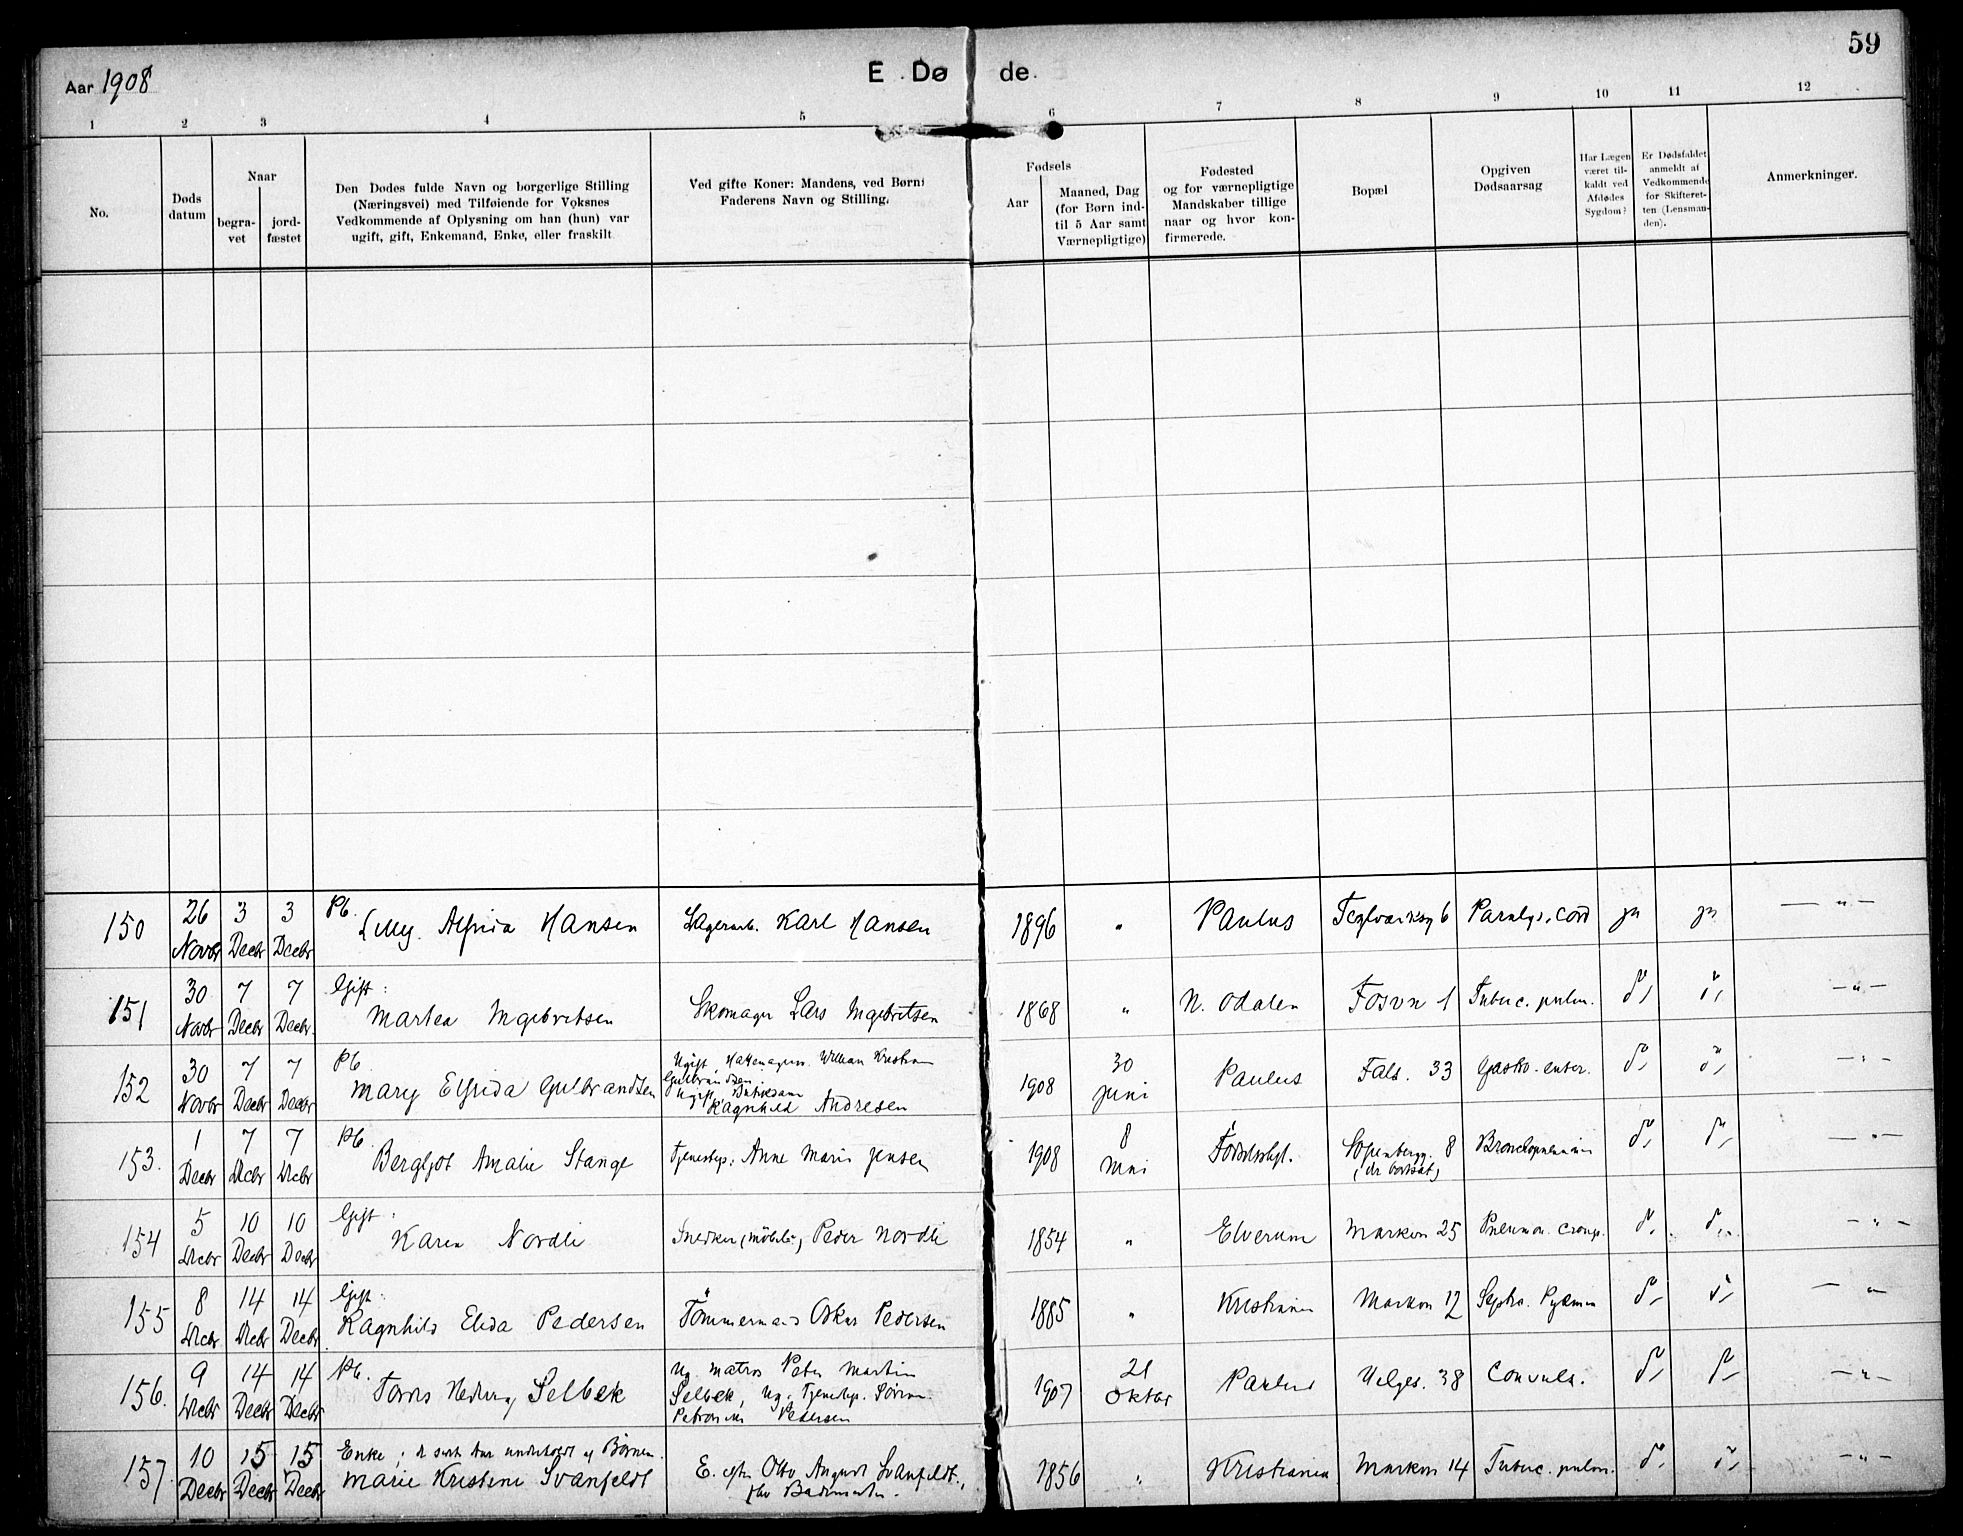 Aar 1908
E. Dø de.
59
1 2 3 4 5 6 7 8 9 10 11 12
No.
Døds datum
Naar
begra-vet
jord-fæstet
Den Dødes fulde Navn og borgerlige Stilling
(Næringsvei) med Tilføiende for Voksnes
Vedkommende af Oplysning om han (hun) var
ugift, gift, Enkemand, Enke, eller fraskilt
Ved gifte Koner: Mandens, ved Børn:
Faderens Navn og Stilling.
Fødsels
Aar
Maaned, Dag
(for Børn ind-
til 5 Aar samt
Værnepligtige)
Fødested
og for værnepligtige
Mandskaber tillige
naar og hvor kon-
firmerede.
Bopæl
Opgiven
Dødsaarsag
Har Lægen
været til-
kaldt ved
Afdødes
Sygdom?
Er Dødsfaldet
anmeldt af
Vedkommende
for Skifteret-
ten (Lensman-
den).
Anmerkninger.
150 26 Novbr 3 Decbr 3 Decbr Pb. Lilly Alfrida Hansen Lagerarb. Karl Hansen 1896 " Paulus Teglverksg 6 Paralys. cord ja ja — " —
151 30 Novbr 7 Decbr 7 Decbr Gift: Martea Ingebretsen Skomager Lars Ingebretsen 1868 " N. Odalen Fosvn 1 Tuberc. pulm. d° d° — " —
152 30 Novbr 7 Decbr 7 Decbr Pb. Mary Elfrida Gulbrandsen Ugift William Kristian
Gulbrandsen
Ugift
Ragnhild Andresen 1908 30 Juni Paulus Fals. 33 Gastro-enter. d° d° — " —
153. 1 Decbr 7 Decbr 7 Decbr Pb. Bergljot Amalie Stange Tjenestep. Anne Marie Jensen 1908 8 Mai Fødselsst. Sofienbergg. 8
(dr bortsat) Bronchopneumoni d° d° — " —
154 5 Decbr 10 Decbr 10 Decbr Gift: Karen Nordli Snedker (møbel) Peder Nordli 1854 " Elverum Markvn 25 Pneumon. croup. d° d° — " —
155 8 Decbr 14 Decbr 14 Decbr Gift: Ragnhild Elida Pedersen Tømmermand Oskar Pedersen 1885 " Kristiania Markvn 12 Septic. Pyæmia d° d° — "
156. 9 Decbr 14 Decbr 14 Decbr Pb. Selbek Ug. matros Peter Martin
Selbek, Ug. Tjenestep.
Pedersen 1907 21 Oktbr Paulus Helges. 38 Convuls. d° d° — " —
157. 10 Decbr 15 Decbr 15 Decbr Enke; underholdt af Børnene.
Marie Kristine Svanfeldt E. efter Otto August Svanfeldt, 1856 " Kristiania Markvn 14 Tuberc. pulm. d° d° — " —